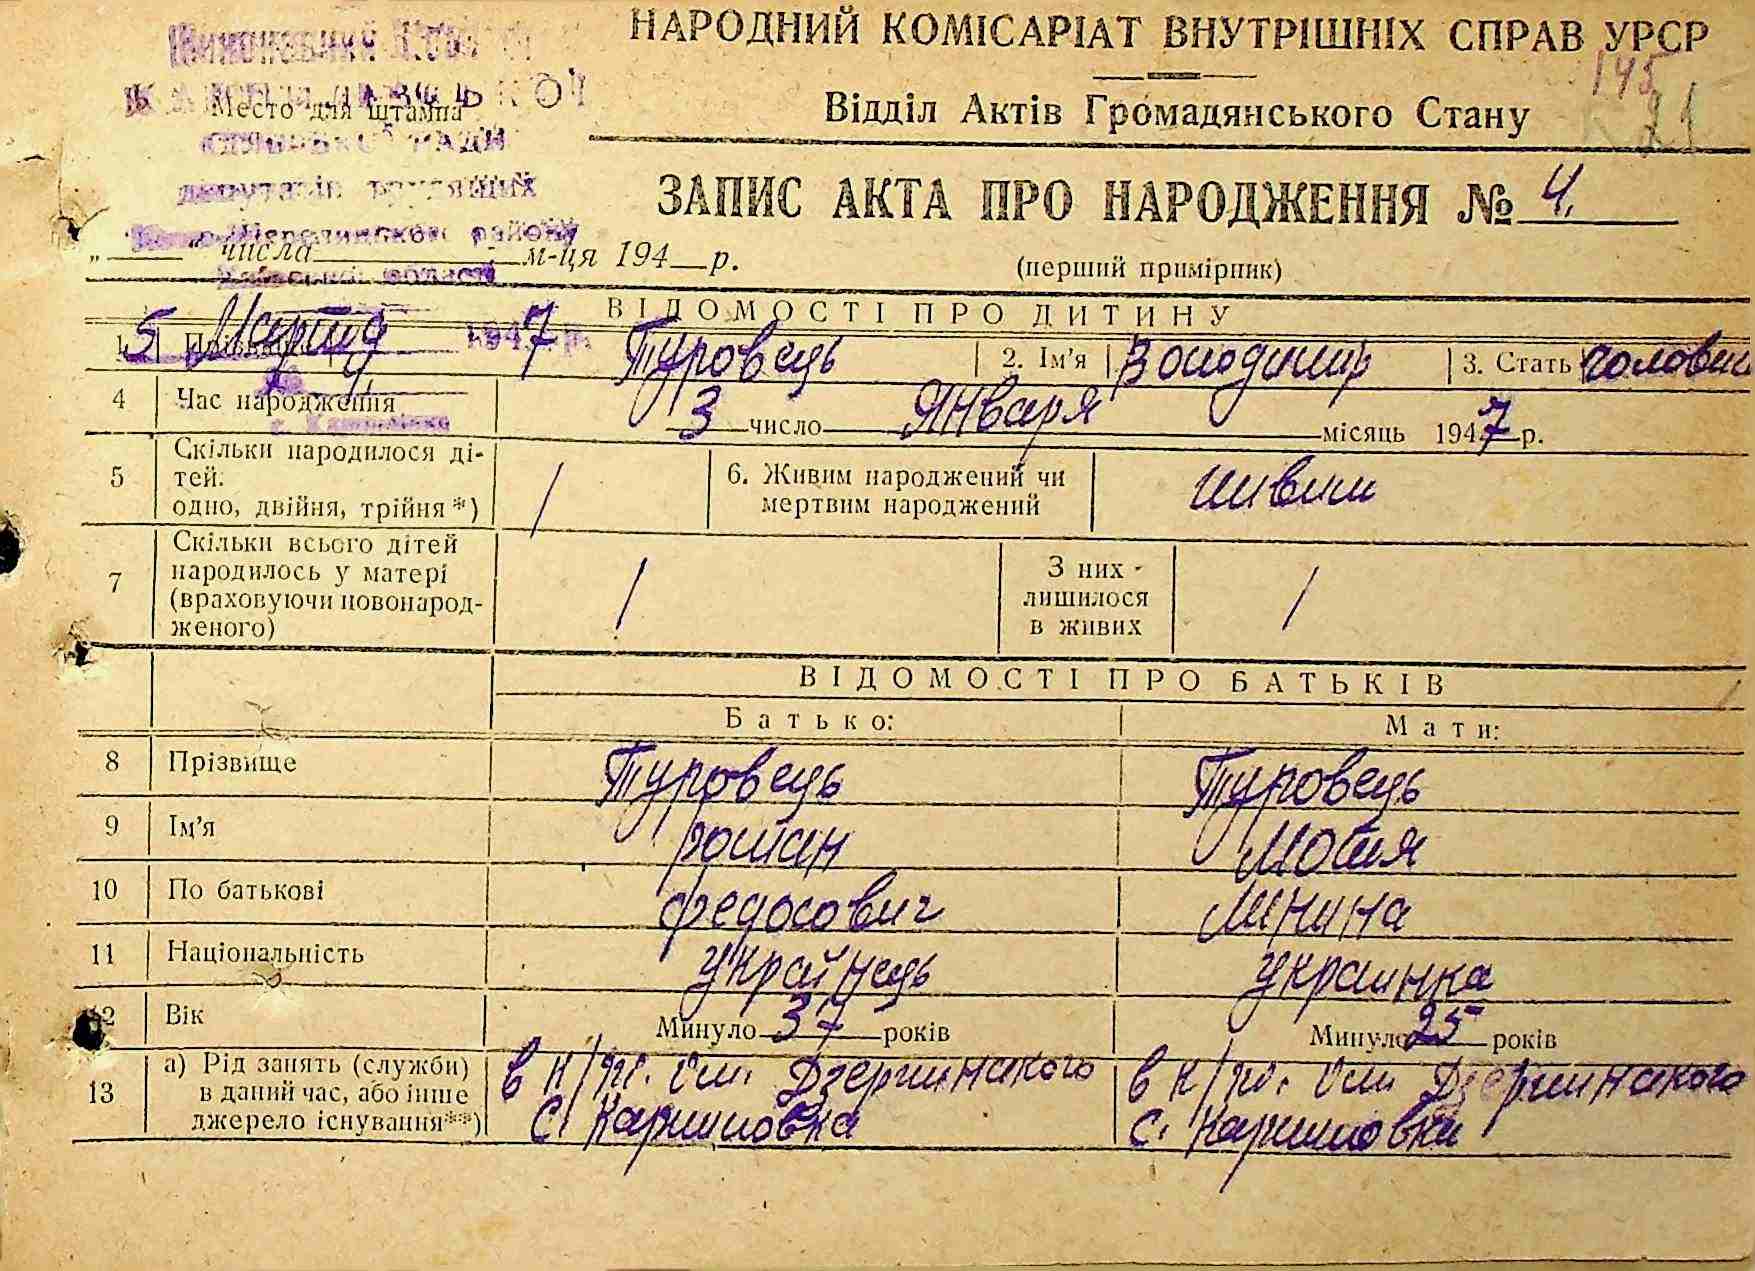 НАРОДНИЙ КОМІСАРІАТ ВНУТРІШНІХ СПРАВ УРСР
145
Відділ Актів Громадянського Стану
21
Место для штампа
депутатів трудящих
ЗАПИС АКТА ПРО НАРОДЖЕННЯ № 4.
„ “ числа м-ця 194 р.
(перший примірник)
ВІДОМОСТІ ПРО ДИТИНУ
5 Марта 1947 р.
1. Туровець 2. Ім'я Володимир 3. Стать
4 Час народження 3 число Января місяць 1947 р.
5 Скільки народилося ді-
тей:
одно, двійня, трійня*) 1
6. Живим народжений чи
мертвим народжений живим
7 Скільки всього дітей
народилось у матері
(враховуючи новонарод-
женого) 1
З них
лишилося
в живих 1
ВІДОМОСТІ ПРО БАТЬКІВ
Батько: Мати:
8 Прізвище Туровець Туровець
9 Ім'я роман
10 По батькові федосович
11 Національність Українець украинка
12 Вік Минуло 37 років Минуло 25 років
13 а) Рід занять (служби)
в даний час, або інше
джерело існування**)
в к/г. им. Дзержинского
с.
в к/г. им. Дзержинского
с.